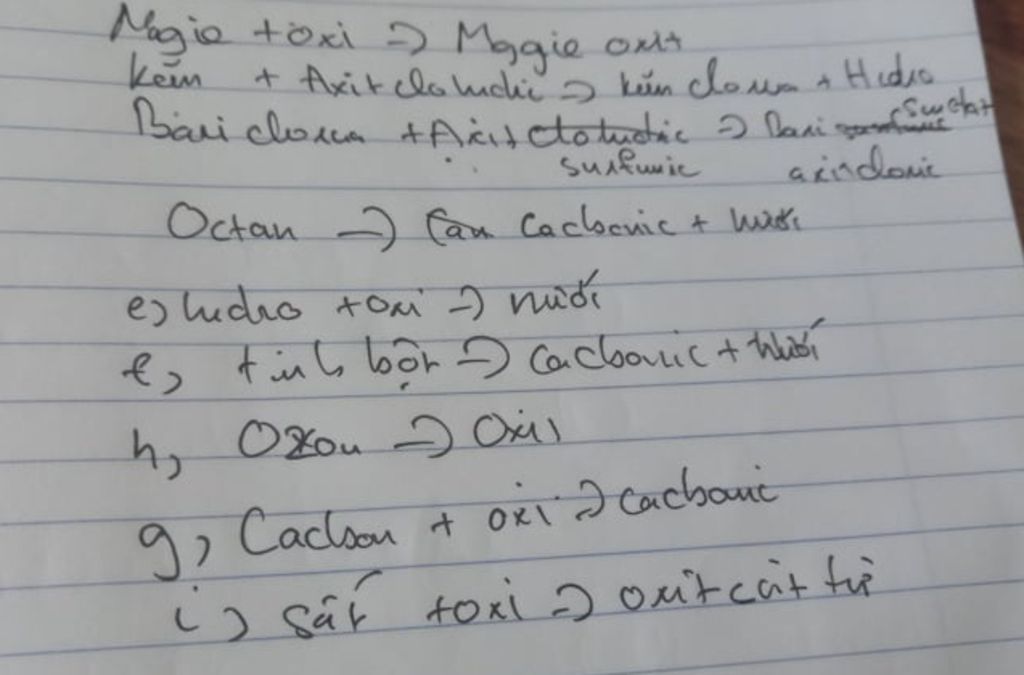 Magie + oxi => Maggie oxit
kẽm + Axit clohidric => kẽm clorua + Hidro
Bari clorua + Axit => Bari sunfat
sunfuric axit cloric
Octan => Cacbonic + nước
e) hidro + oxi => nước
f, tinh bột => Cacbonic + nước
h, Ozon => Oxi
g, Cacbon + oxi => cacbonic
i) sắt + oxi => oxit sắt từ